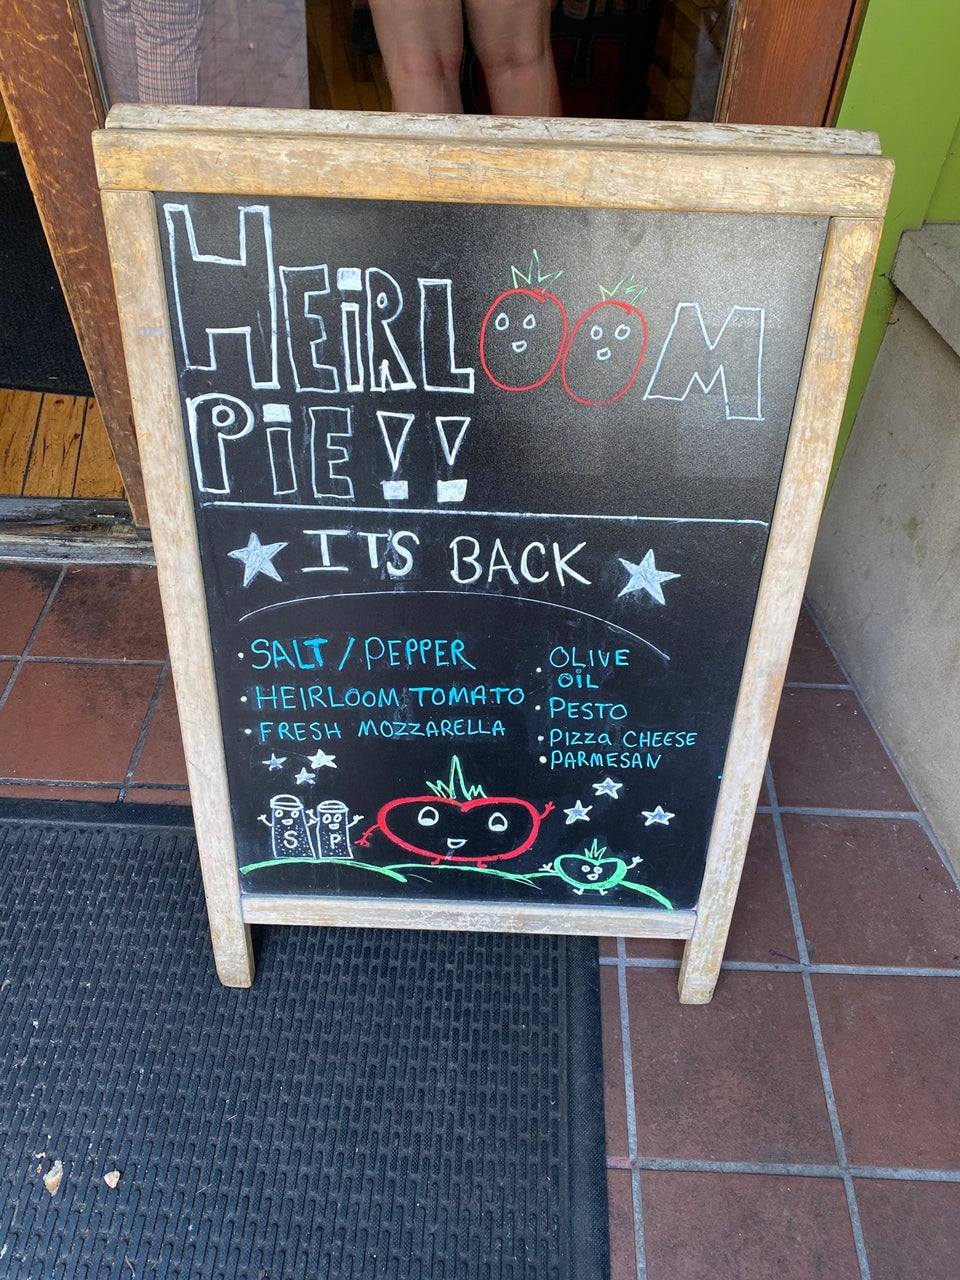 HEiRLOOM
PiE!!
ITS BACK
• SALT / PEPPER
• HEIRLOOM TOMATO
• FRESH MOZZARELLA
• OLIVE
OiL
• PESTO
• PIZZa CHEESE
• PARMESAN
S P